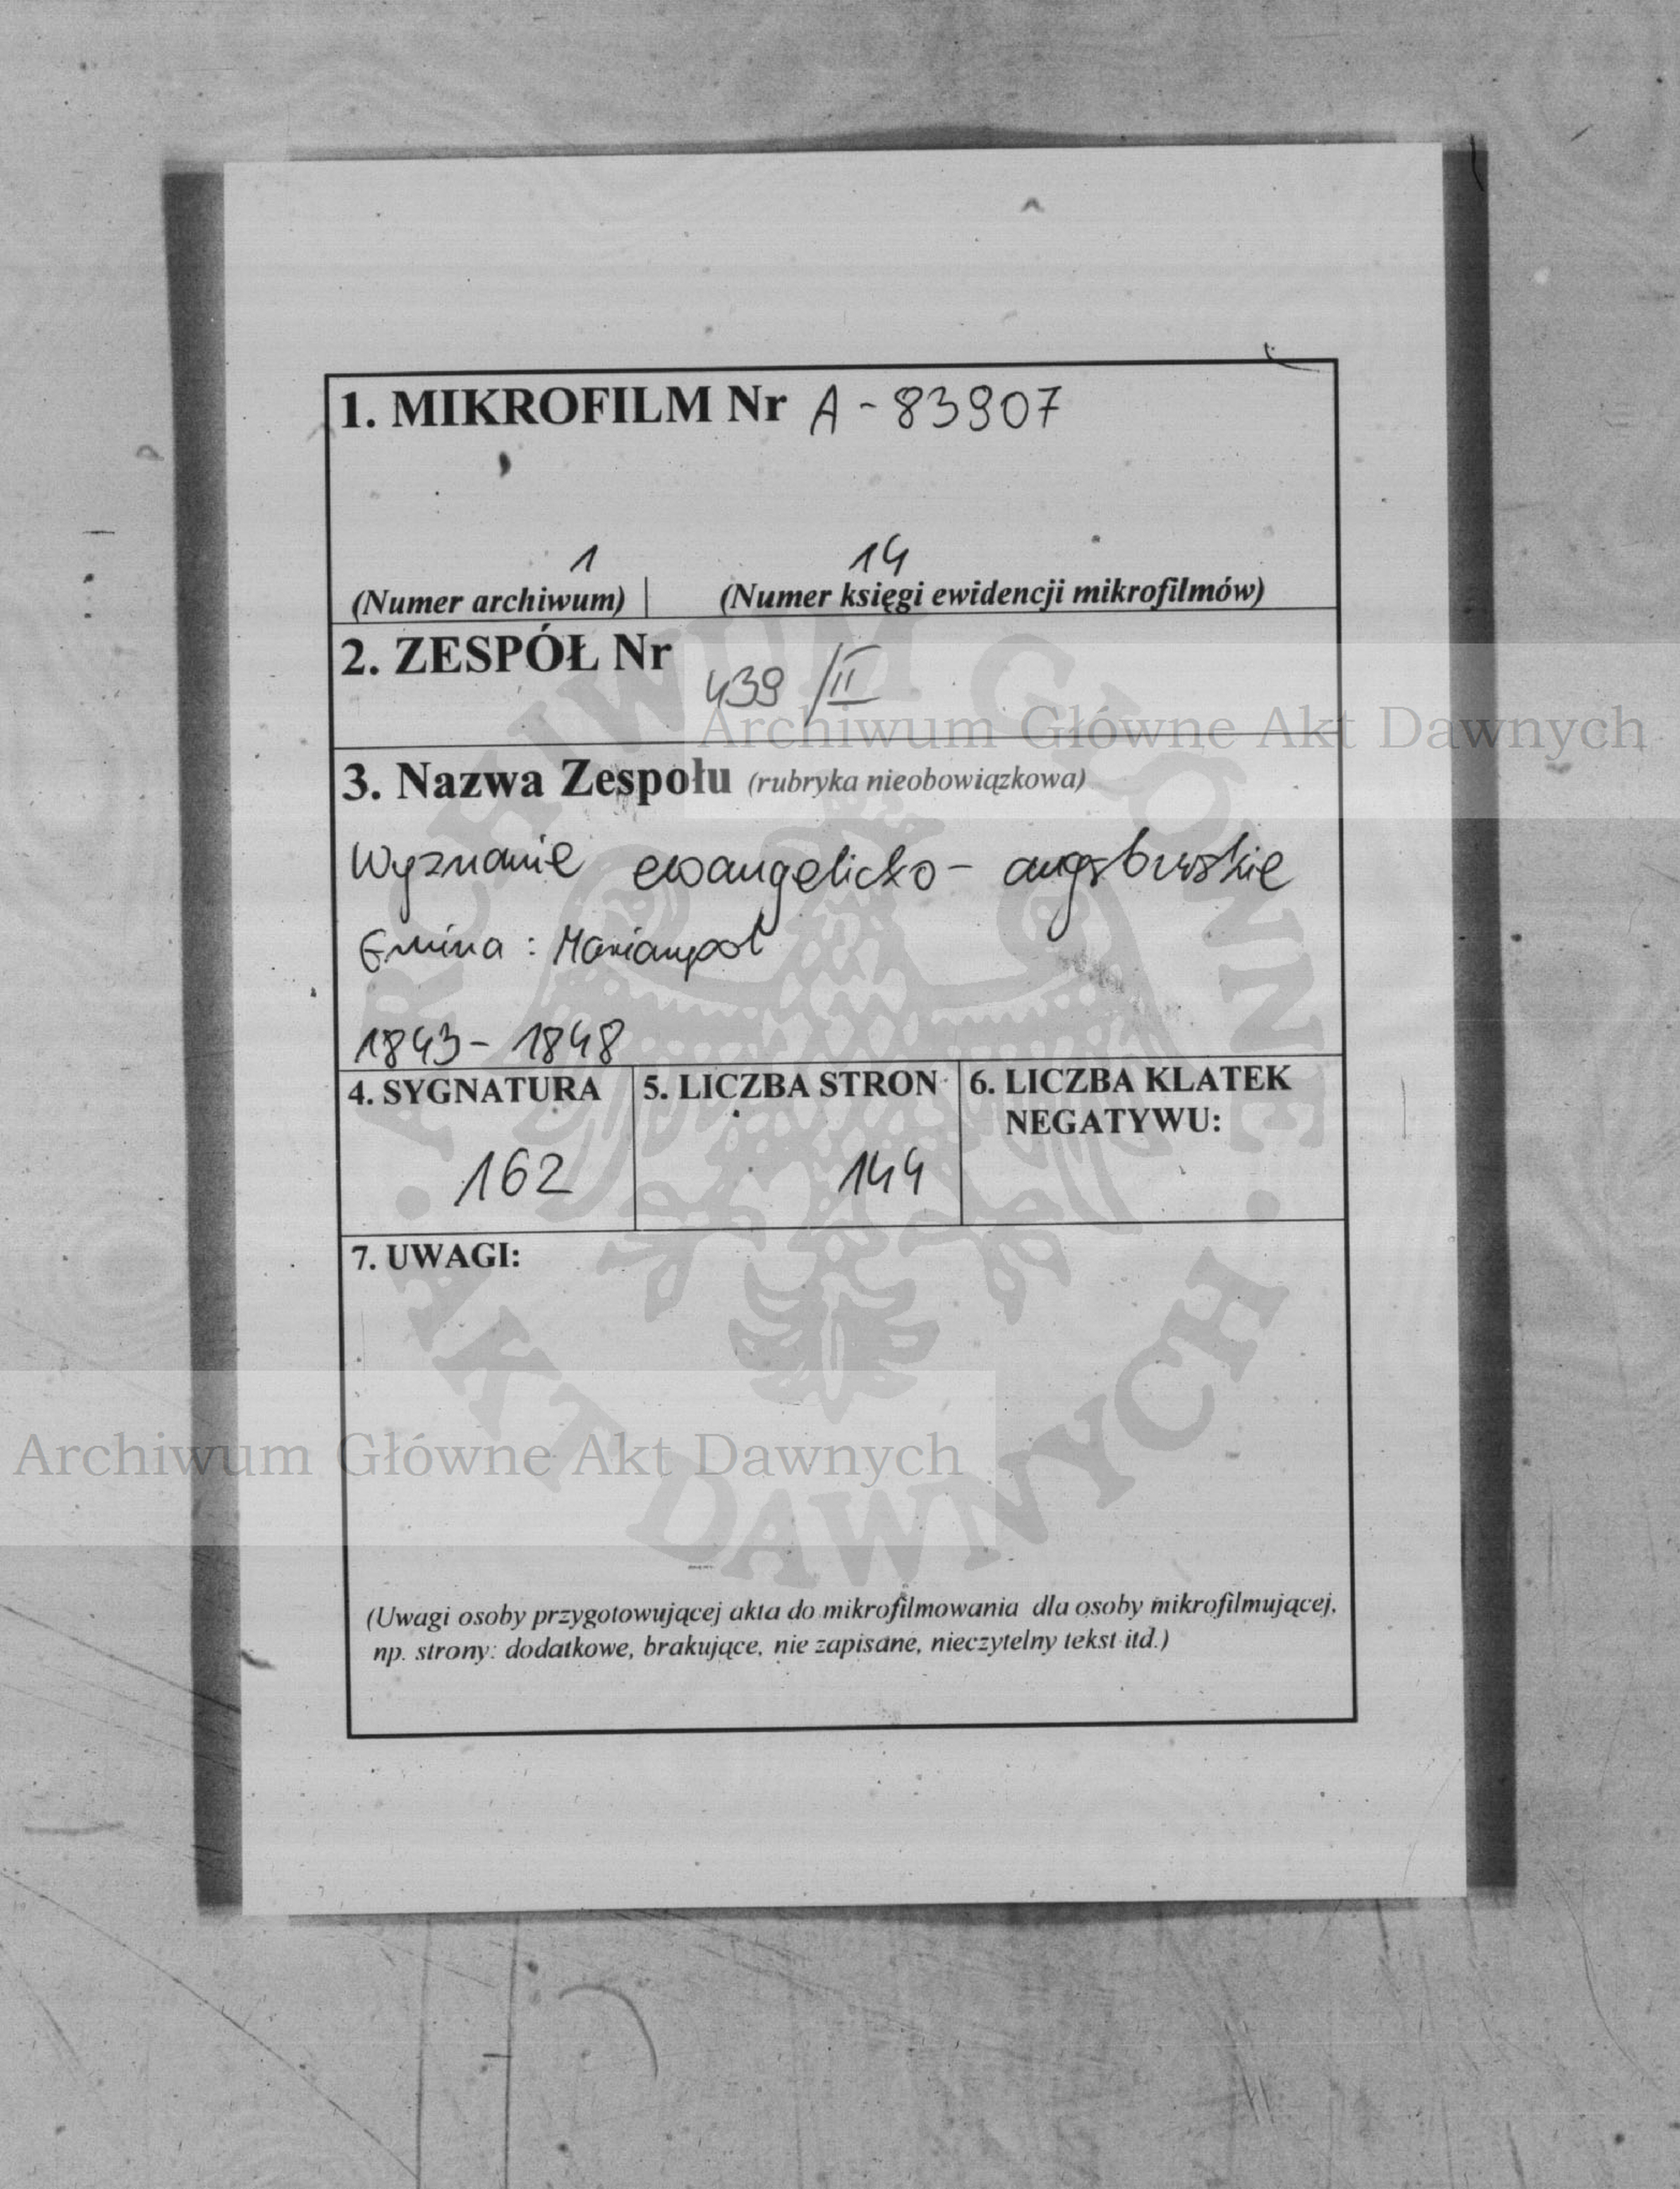 1. MIKROFILM Nr A - 83907
1 14
(Numer archiwum) (Numer księgi ewidencji mikrofilmów)
2. ZESPÓŁ Nr
439 / II
Archiwum Główne Akt Dawnych
3. Nazwa Zespołu (rubryka nieobowiązkowa)
Wyznanie ewangelicko - augsburskie
Gmina : Mariampol
1843 - 1848
4. SYGNATURA 5. LICZBA STRON 6. LICZBA KLATEK
NEGATYWU:
162 144
7. UWAGI:
Archiwum Główne Akt Dawnych
(Uwagi osoby przygotowującej akta do mikrofilmowania dla osoby mikrofilmującej,
np. strony: dodatkowe, brakujące, nie zapisane, nieczytelny tekst itd.)
ARCHIWUM GŁÓWNE
AKT DAWNYCH